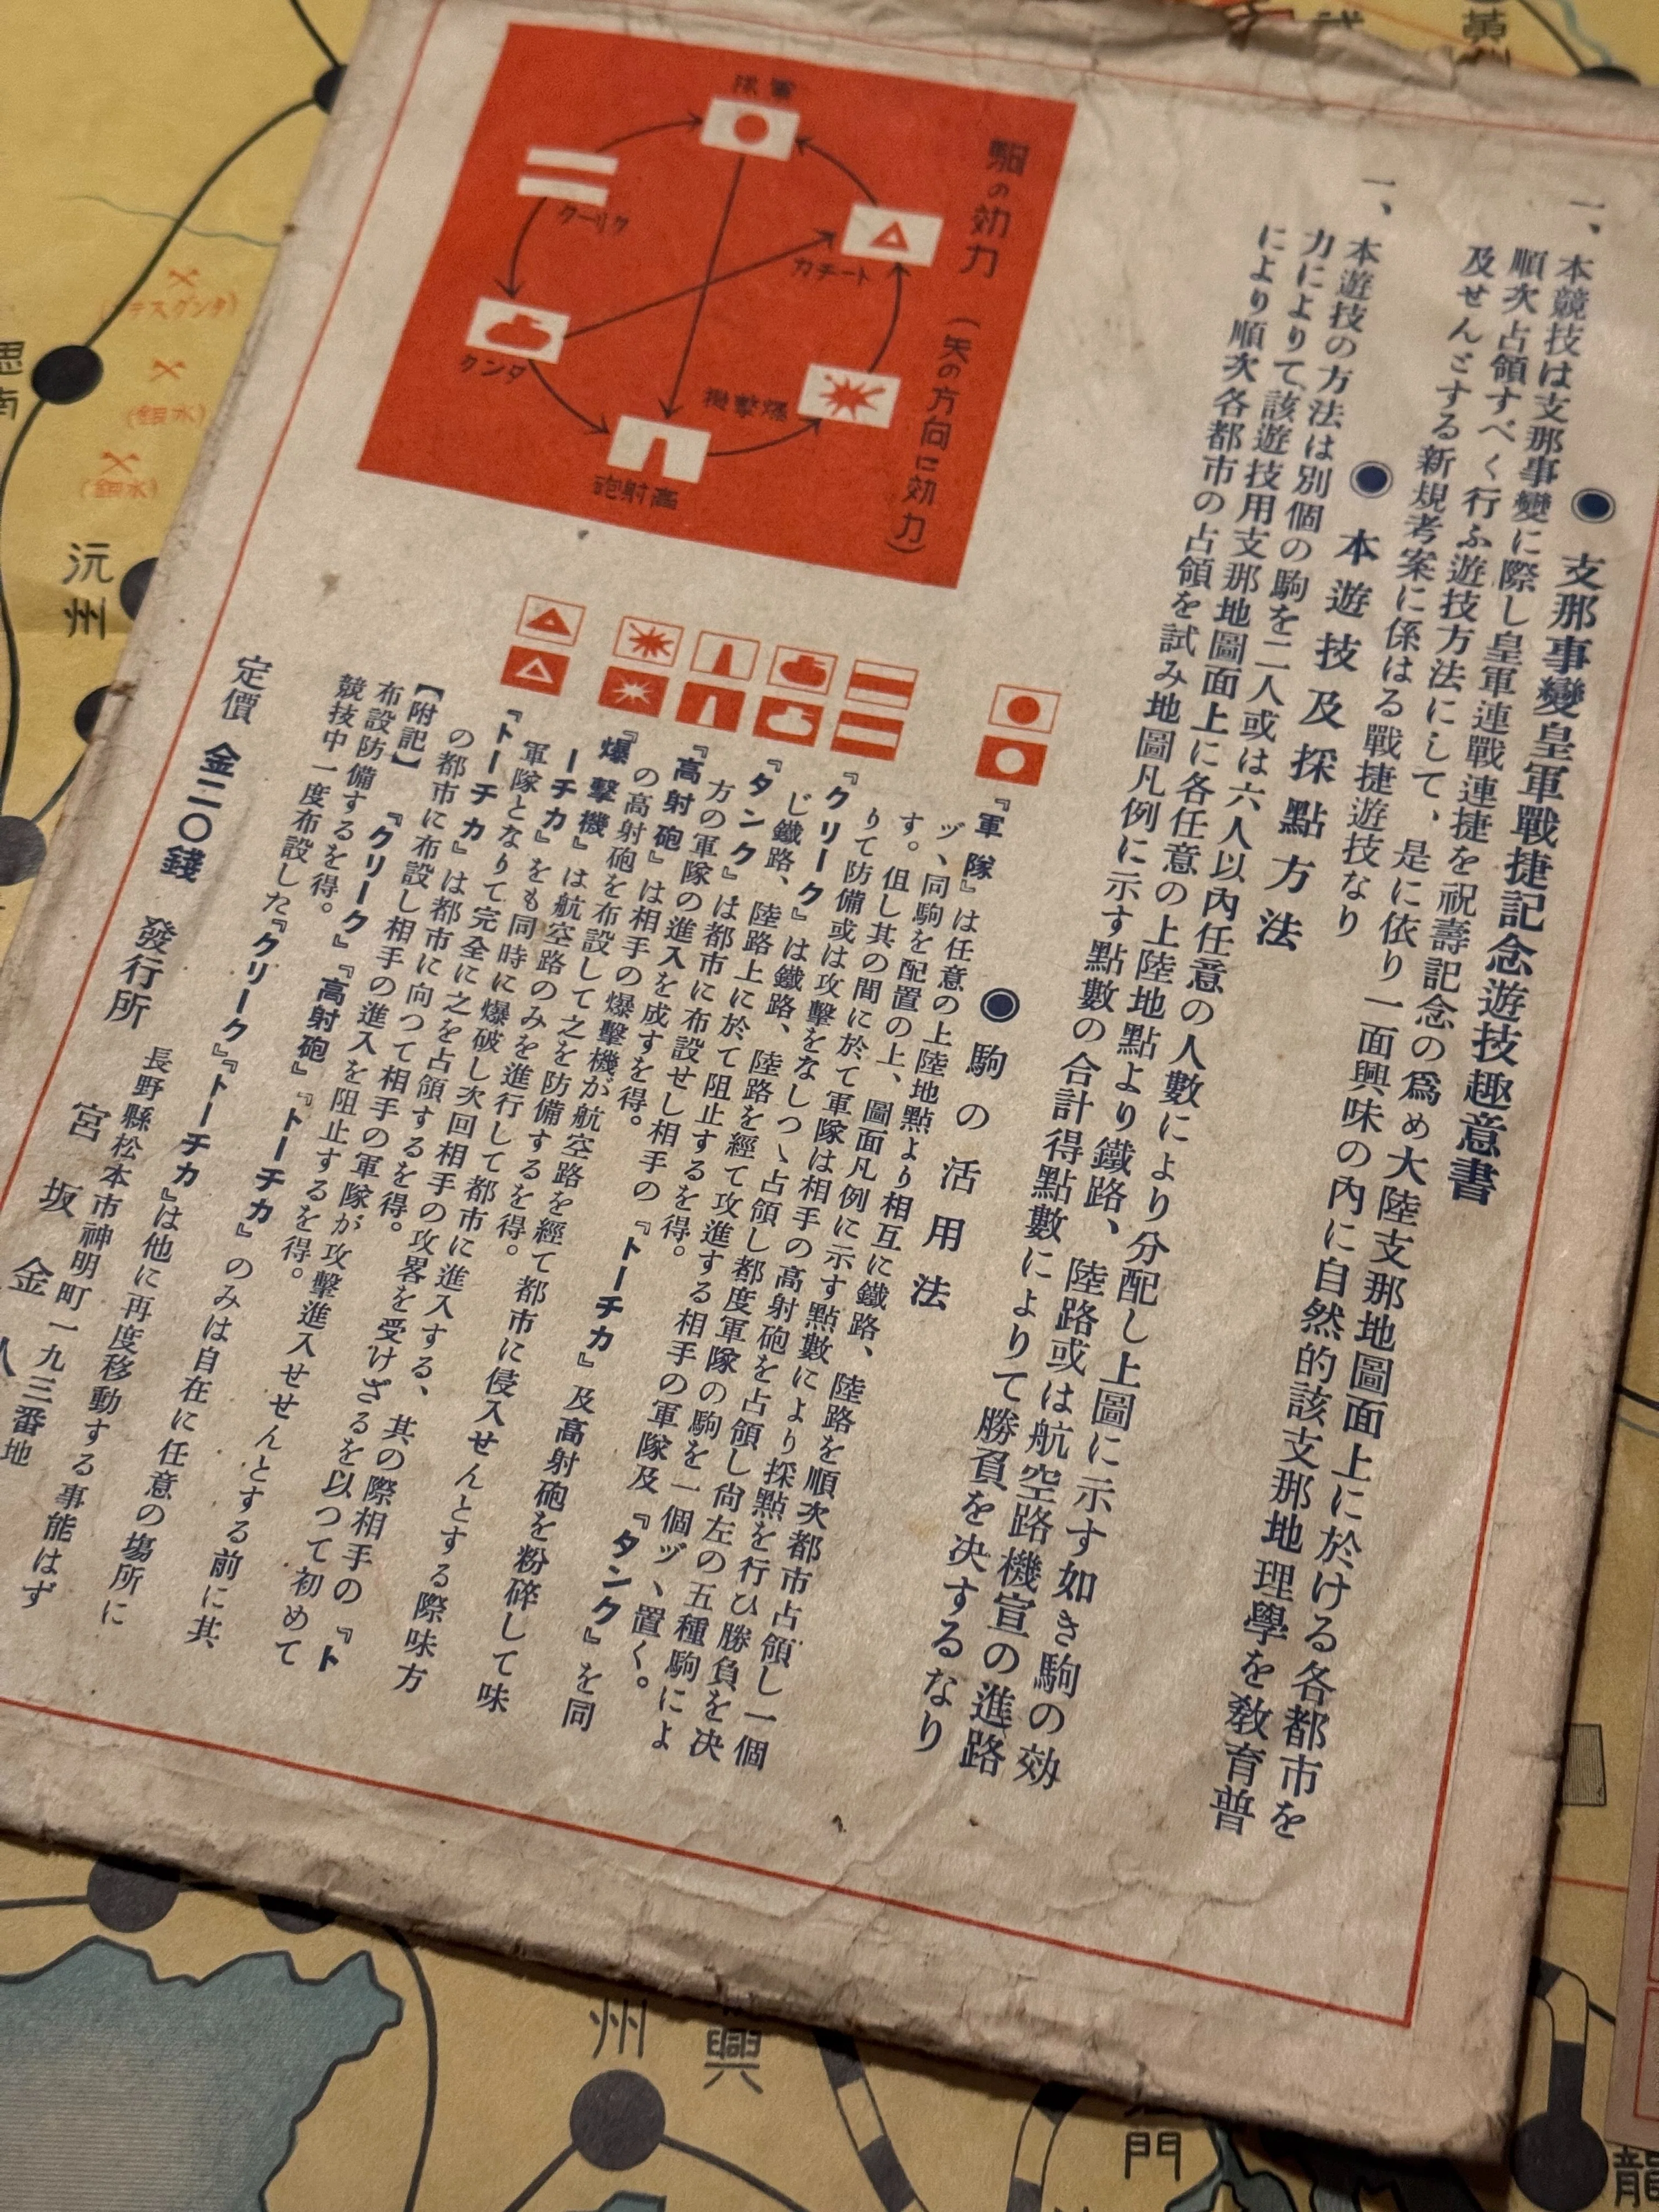 ● 支那事變皇軍戰捷記念遊技趣意書
一、本競技は支那事變に際し皇軍連戰連捷を祝壽記念の爲め大陸支那地圖面上に於ける各都市を
順次占領すべく行ふ遊技方法にして、是に依り一面興味の內に自然的該支那地理學を教育普
及せんとする新規考案に係はる戰捷遊技なり
● 本遊技及採點方法
一、本遊技の方法は別個の駒を二人或は六人以內任意の人數により分配し上圖に示す如き駒の効
力によりて該遊技用支那地圖面上に各任意の上陸地點より鐵路、陸路或は航空路機宣の進路
により順次各都市の占領を試み地圖凡例に示す點數の合計得點數によりて勝負を決するなり
駒の効力(矢の方向に効力)
軍隊
トーチカ
爆擊機
高射砲
タンク
クリーク
● 駒の活用法
『軍隊』は任意の上陸地點より相互に鐵路、陸路を順次都市占領し一個
ヅヽ同駒を配置の上、圖面凡例に示す點數により採點を行ひ勝負を決
す。但し其の間に於て軍隊は相手の高射砲を占領し尙左の五種駒によ
りて防備或は攻擊をなしつヽ占領し都度軍隊の駒を一個ヅヽ置く。
『クリーク』は鐵路、陸路を經て攻進する相手の軍隊及『タンク』を同
じ鐵路、陸路上に於て阻止するを得。
『タンク』は都市に布設せし相手の『トーチカ』及高射砲を粉碎して味
方の軍隊の進入を成すを得。
『高射砲』は相手の爆擊機が航空路を經て都市に侵入せんとする際味方
の高射砲を布設して之を防備するを得。
『爆擊機』は航空路のみを進行して都市に進入する、其の際相手の『ト
ーチカ』をも同時に爆破し次回相手の攻畧を受けざるを以つて初めて
軍隊となりて完全に之を占領するを得。
『トーチカ』は都市に向つて相手の軍隊が攻擊進入せせんとする前に其
の都市に布設し相手の進入を阻止するを得。
【附記】『クリーク』『高射砲』『トーチカ』のみは自在に任意の場所に
布設防備するを得。
競技中一度布設した『クリーク』『トーチカ』は他に再度移動する事能はず
定價 金二〇錢 發行所 長野縣松本市神明町一九三番地
宮坂金人
沅
州
(テスグンタ)
(鉛水)
(鉛水)
南
州
興
門
龍